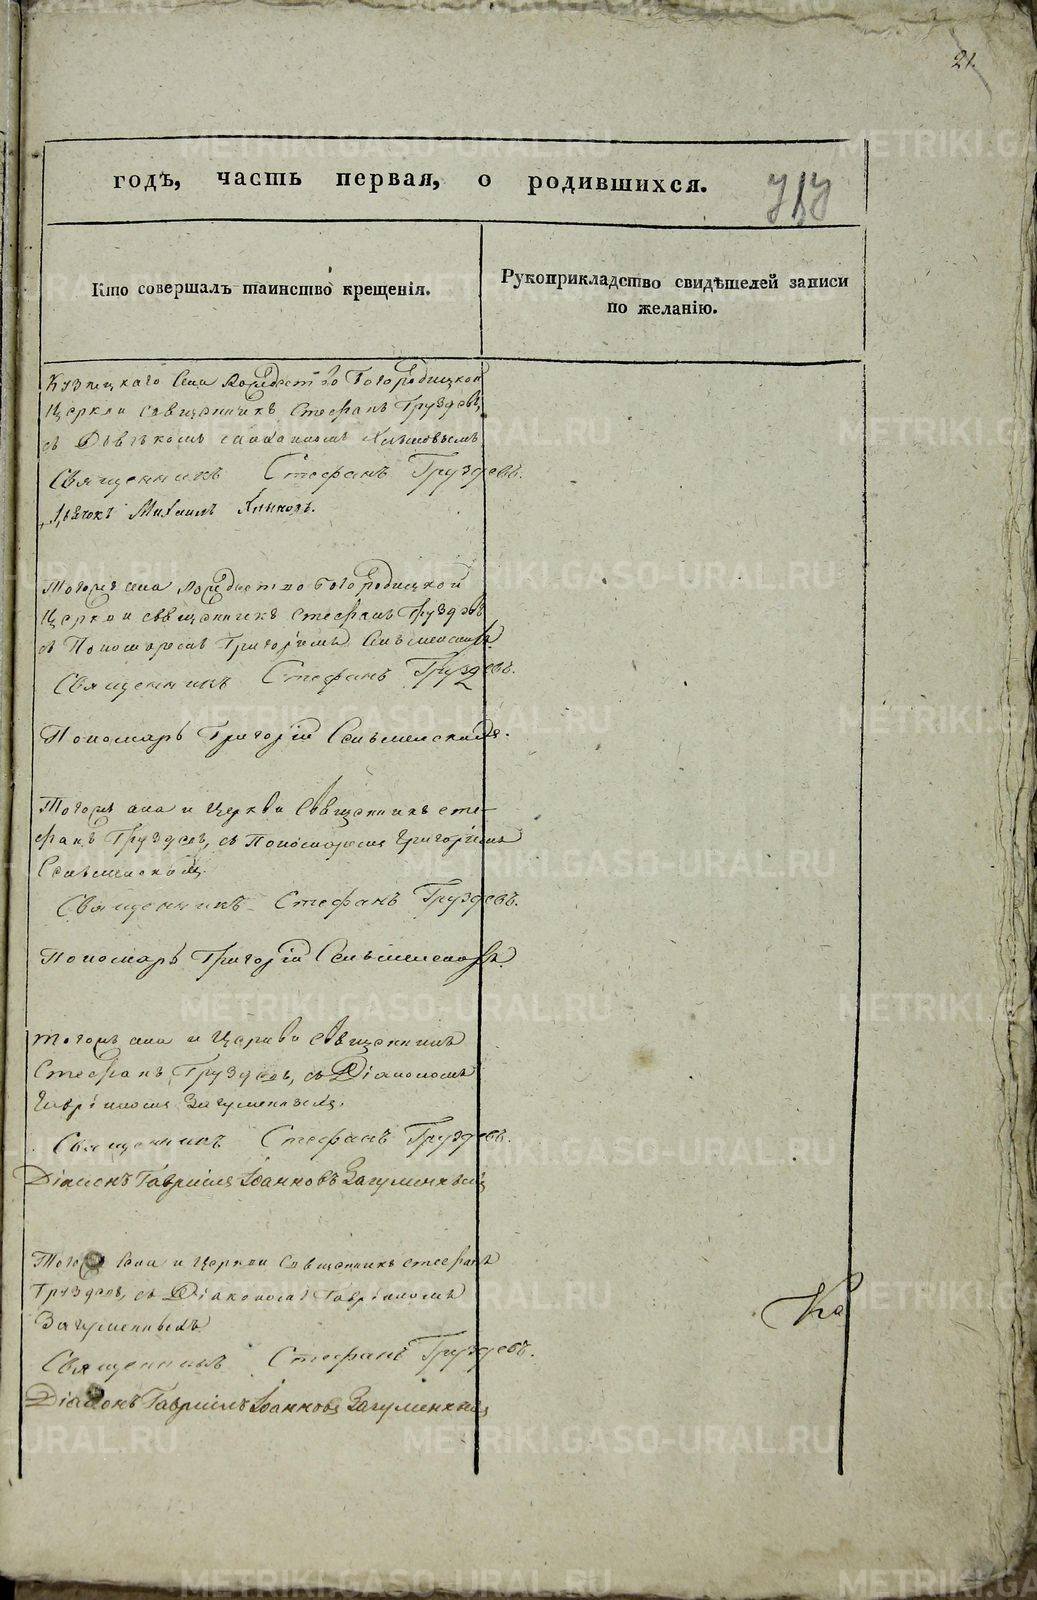 21.
годѣ, часть первая, о родившихся.
Кто совершалъ таинство крещенія.
Рукоприкладство свидѣтелей записи
по желанію.
Села Богородицкой
Церкви священникъ Стефанъ Груздевъ,
съ
Священникъ Стефанъ Груздевъ.
Дьячокъ Михаилъ
Тогожъ села Богородицкой
Церкви священникъ Стефанъ Груздевъ
съ Пономаремъ Григоріемъ
Священникъ Стефанъ Груздевъ.
Пономарь Григорій
Тогожъ села и Церкви Священникъ Сте-
фанъ Груздевъ, съ Пономаремъ Григоріемъ
Священникъ Стефанъ Груздевъ.
Пономарь Григорій
Тогожъ села и Церкви Священникъ
Стефанъ Груздевъ, съ Діакономъ
Гавріиломъ Загуменнымъ.
Священникъ Стефанъ Груздевъ.
Діаконъ Гавріилъ Іоанновъ Загуменный
Тогожъ села и Церкви Священникъ Стефанъ
Груздевъ, съ Діакономъ Гавріиломъ
Загуменнымъ
Священникъ Стефанъ Груздевъ.
Діаконъ Гавріилъ Іоанновъ Загуменный
METRIKI.GASO-URAL.RU